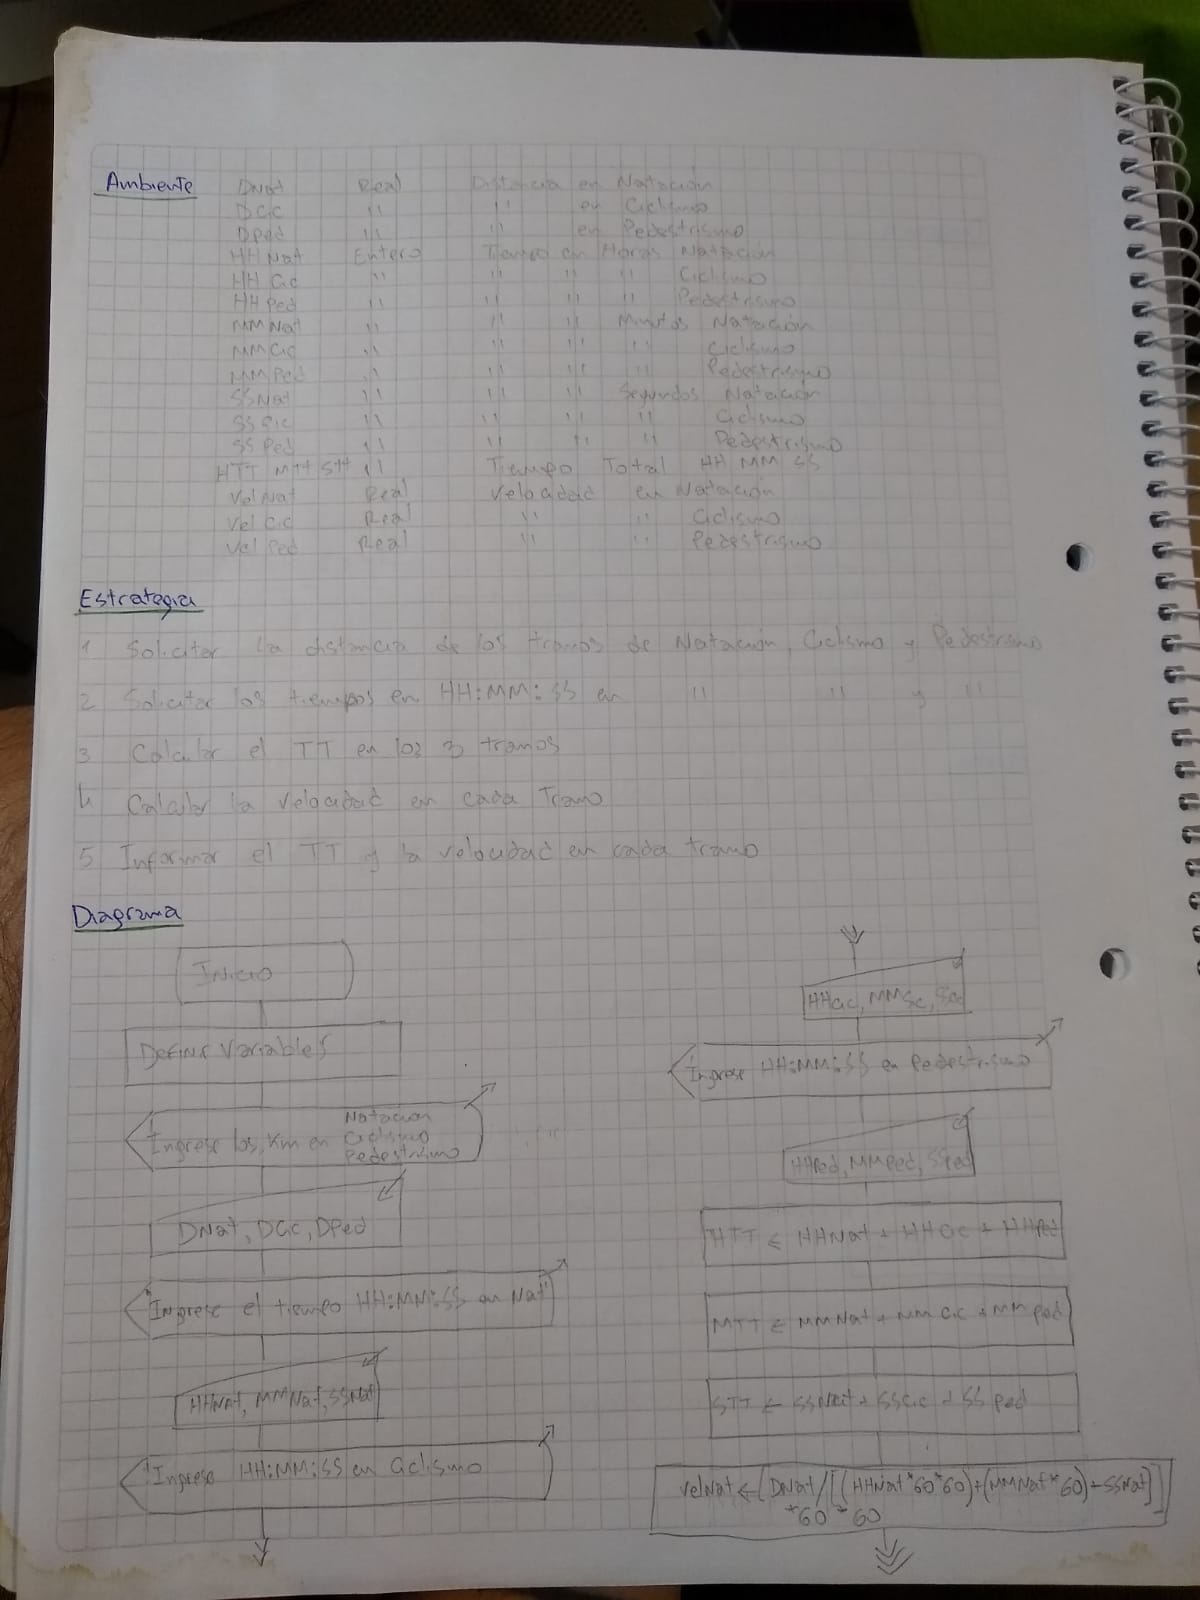 Ambiente DNat Real Distancia en Natación
DCic " " en Ciclismo
DPed " " en Pedestrismo
HHNat Entero Tiempo en Horas Natación
HHCic " " " " Ciclismo
HHPed " " " " Pedestrismo
MMNat " " " Minutos Natación
MMCic " " " " Ciclismo
MMPed " " " " Pedestrismo
SSNat " " " Segundos Natación
SSCic " " " " Ciclismo
SSPed " " " " Pedestrismo
HTT MTT STT " Tiempo Total HH MM SS
VelNat Real Velocidad en Natación
VelCic Real " " Ciclismo
VelPed Real " " Pedestrismo
Estrategia
1 Solicitar la distancia de los tramos de Natación, Ciclismo y Pedestrismo
2 Solicitar los tiempos en HH:MM:SS en " " y "
3 Calcular el TT en los 3 tramos
4 Calcular la velocidad en cada Tramo
5 Informar el TT y la velocidad en cada tramo
Diagrama
Inicio
Definir Variables
Ingrese los Km en Natación
Ciclismo
Pedestrismo
DNat, DCic, DPed
"Ingrese el tiempo HH:MM:SS en Nat"
HHNat, MMNat, SSNat
"Ingrese HH:MM:SS en Ciclismo
HHCic, MMSc,
Ingrese HH:MM:SS en Pedestrismo
HHPed, MMPed, SSPed
HTT ← HHNat + HHCic + HHPed
MTT ← MMNat + MMCic + MMPed
STT ← SSNat + SSCic + SSPed
velNat ← (DNat/[(HHNat*60*60)+(MMNat*60)+SSNat]]
*60*60